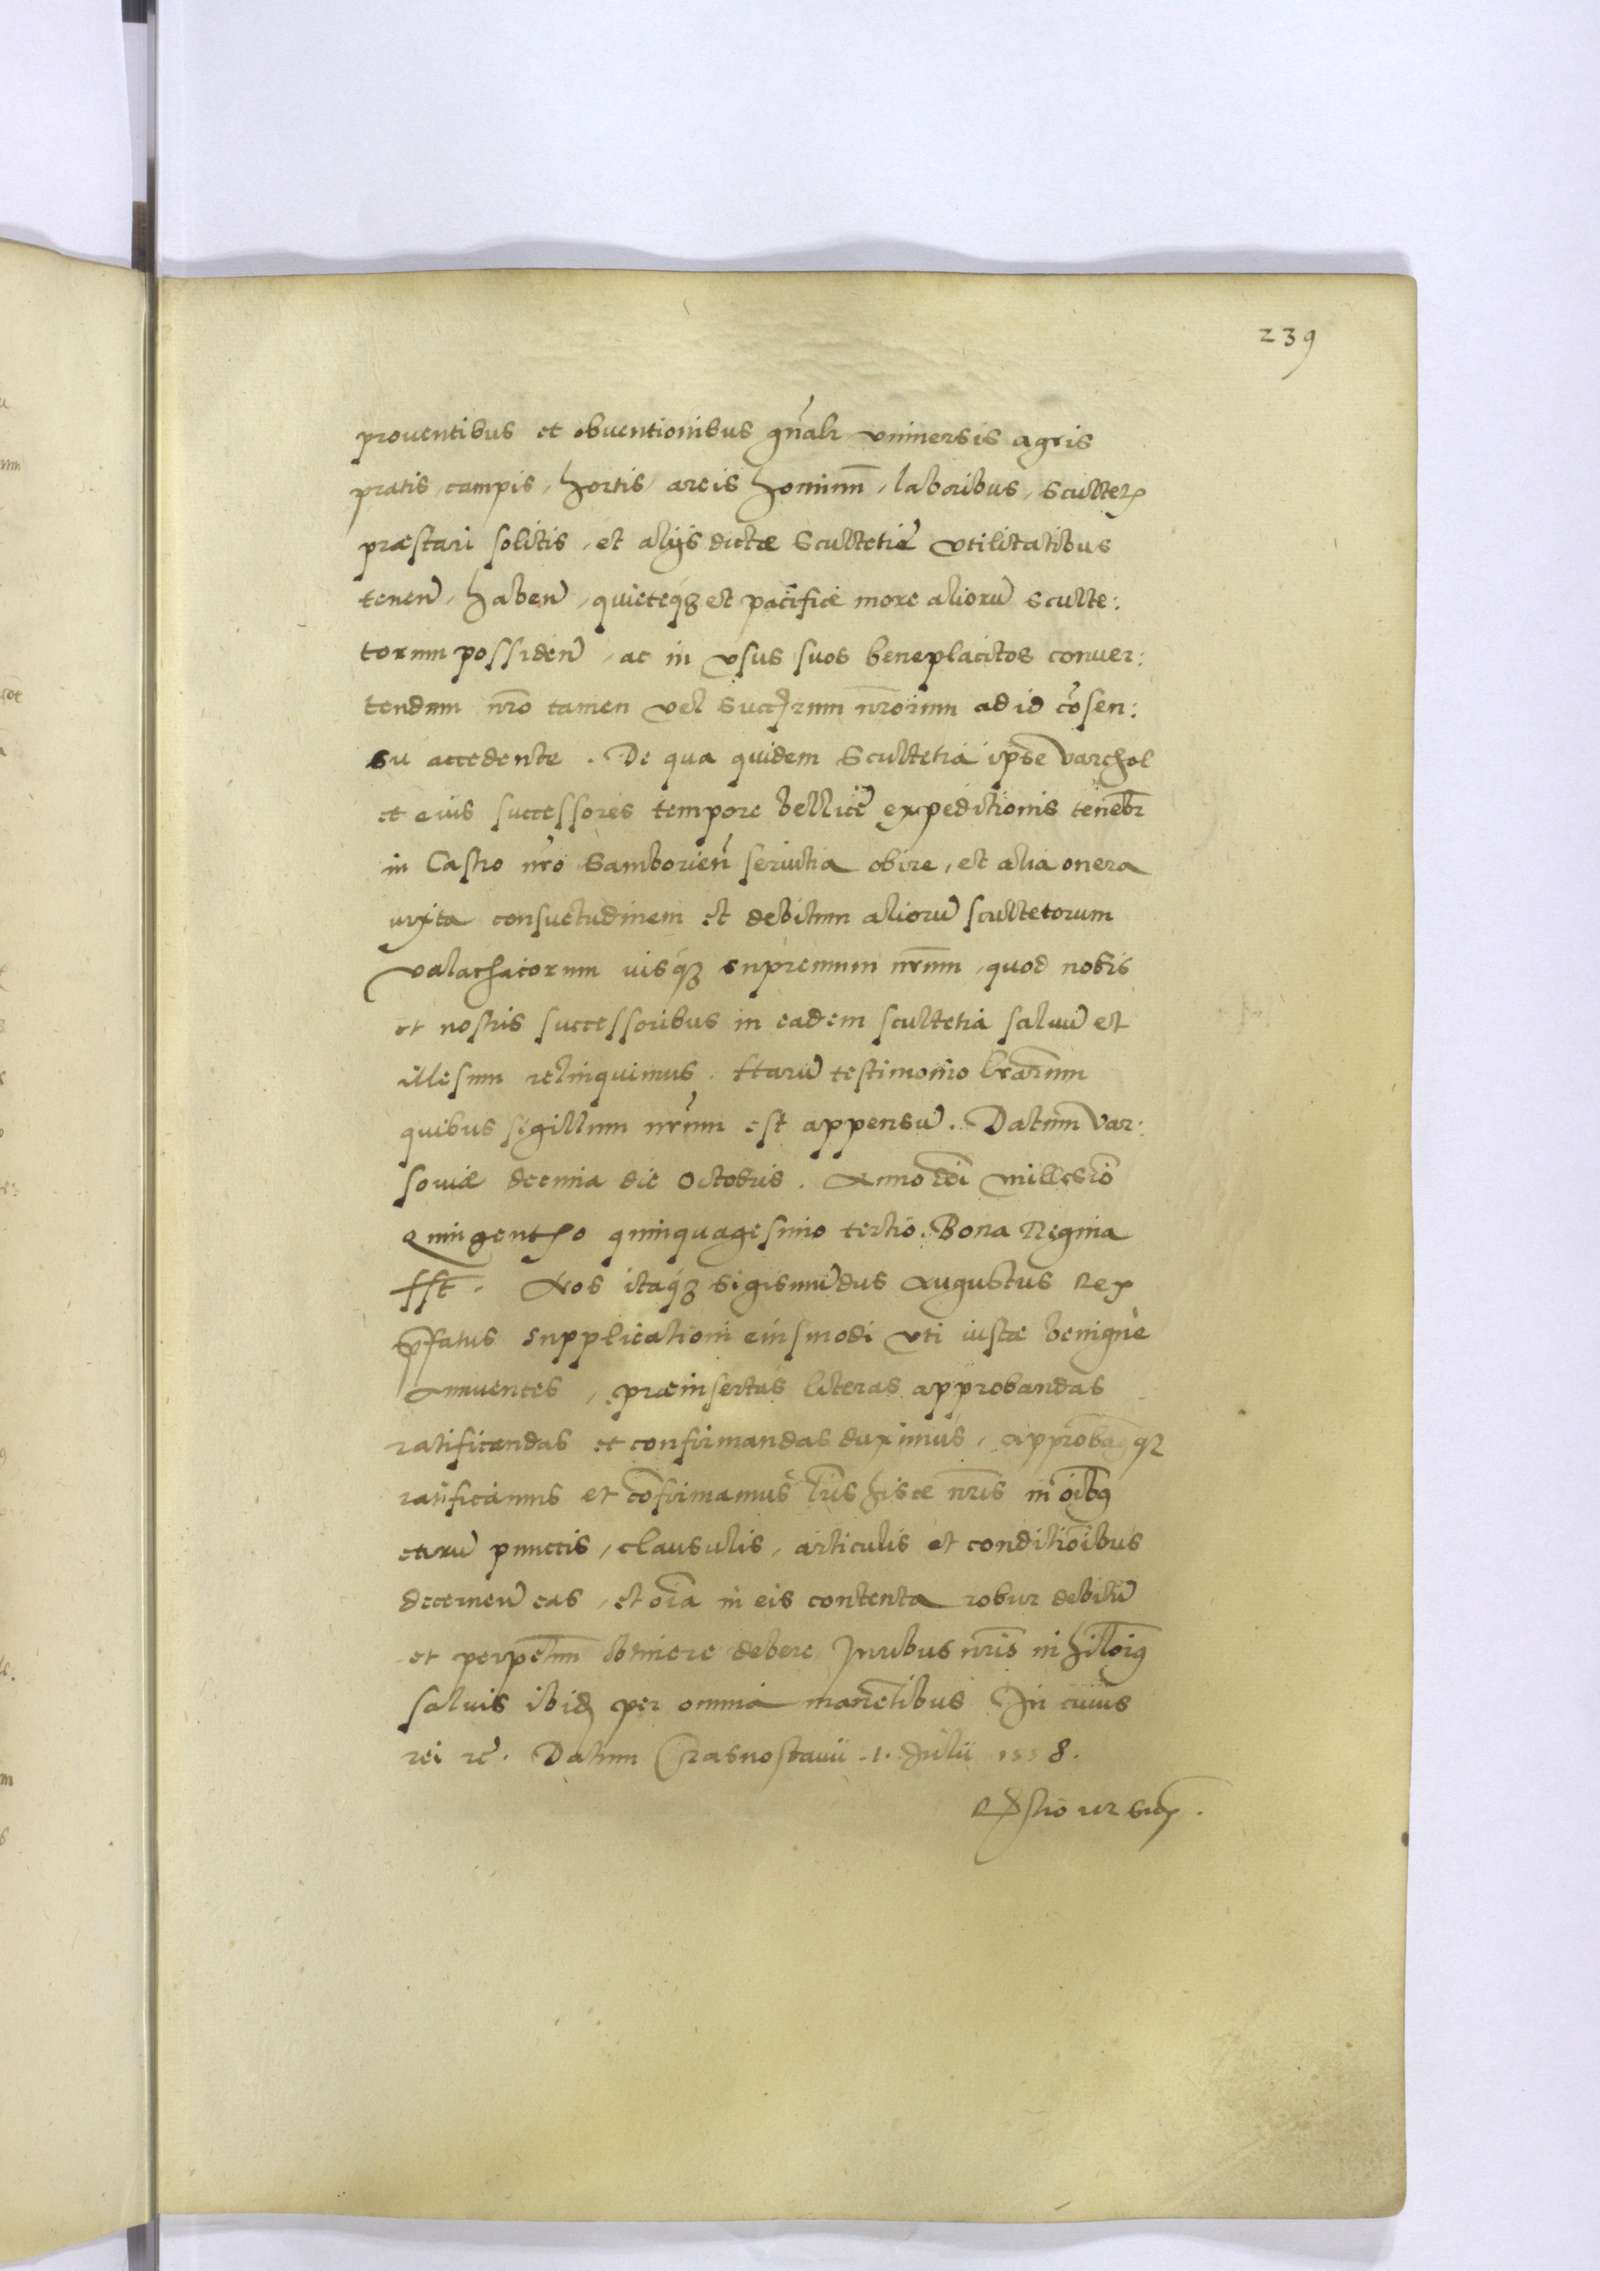 239
prouentibus et obuentionibus gn̄alr vniuersis agris
pratis, campis, hortis, areis hominū, laboribus, sculter
præstari solitis, et alijs dictæ Scultetiæ vtilitatibus
tenen̄, haben̄, quieteq́3 et pacificè more aliorū sculte:
torum possiden̄, ac in vsus suos beneplacitos conuer:
tendum nr̄o tamen vel Succrum nr̄orum ad id cōsen:
su accedente. De qua quidem Scultetia ipse Varchol
et eius successores tempore bellicę expeditionis tenebr̄
in Castro nr̄o Samborien̄ seruitia obire, et alia onera
iuxta consuetudinem et debitum aliorū scultetorum
valachicorum iusq́3 supremum nr̄um, quod nobis
et nostris successoribus in eadem scultetia saluū et
illesum relinquimus. Harū testimonio lr̄arum
quibus sigillum nr̄um est appensū. Datum Var:
souiæ decima die Octobris. Anno dn̄i millesimō
Quingentmo quinquagesimo tertio. Bona Regina
sst. Nos itaq́3 Sigismūdus Augustus Rex
p̄fatus supplicationi eiusmodi vti iustæ benignè
Annuentes, præinsertas literas approbandas
ratificandas et confirmandas duximus, approbāq3
ratificamus et cōfirmamus lr̄is hisce nr̄is in oībus
earū punctis, clausulis, articulis et conditiōibus
decernen̄ eas, et oīa in eis contenta robur debitū
et perpetuum obtinere debere, Iuribus nr̄is nihilomīg
saluis ibid per omnia manētibus. In cuius
rei rē. Datum Crasnostauii .1. Julii 1558.